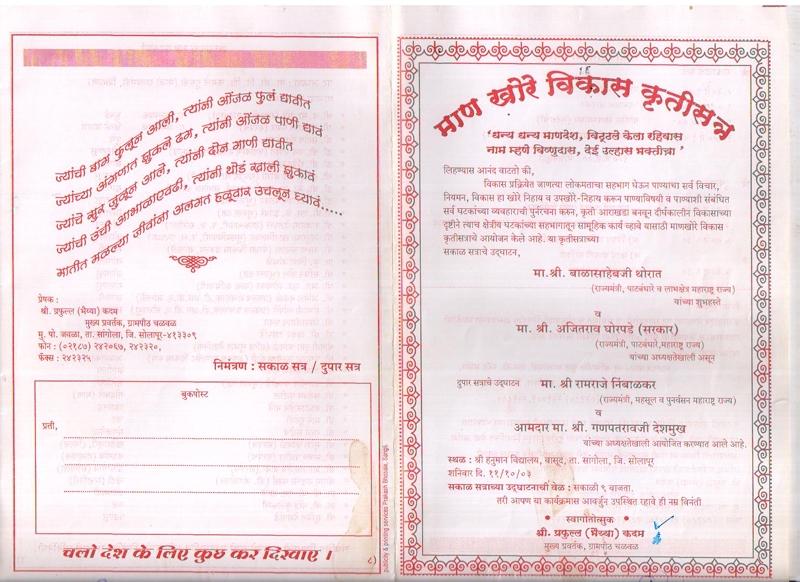 ज्यांची बाग फुलून आली, त्यांनी ओंजळ फुलं द्यावीत
ज्यांच्या अंगणात झुकले ढग, त्यांनी ओंजळ पाणी द्यावं
ज्यांचे सुर जुळून आले, त्यांनी दोन गाणी द्यावीत
ज्यांची उंची आभाळाएवढी, त्यांनी थोडं खाली झुकावं
मातीत मळल्या जीवांना अलगत हळूवार उचलून घ्यावं.....
प्रेषक :
श्री. प्रफुल्ल (भैय्या) कदम
मुख्य प्रवर्तक, ग्रामपीठ चळवळ
मु. पो. जवळा, ता. सांगोला, जि. सोलापूर-४१३३०९
फोन : (०२१८७) २४२०६७, २४२३२०,
फॅक्स : २४२३२५
निमंत्रण : सकाळ सत्र / दुपार सत्र
बुकपोस्ट
प्रती,
चलो देश के लिए कुछ कर दिखाए ।
८)
Publicity & printing services Prakash Bhosale, Sangli.
माण खोरे विकास कृतीसत्र
'धन्य धन्य माणदेश, विठ्ठले केला रहिवास
नाम म्हणे विष्णुदास, देई उल्हास भक्तीचा'
लिहण्यास आनंद वाटतो की,
विकास प्रक्रियेत जाणत्या लोकमताचा सहभाग घेऊन पाण्याचा सर्व विचार,
नियमन, विकास हा खोरे निहाय व उपखोरे-निहाय करून पाण्याविषयी व पाण्याशी संबंधित
सर्व घटकांच्या व्यवहाराची पुर्नरचना करुन, कृती आराखडा बनवून दीर्घकालीन विकासाच्या
दृष्टीने त्याच क्षेत्रीय घटकांच्या सहभागातून सामूहिक कार्य व्हावे यासाठी माणखोरे विकास
कृतीसत्राचे आयोजन केले आहे. या कृतीसत्राच्या
सकाळ सत्राचे उद्घाटन,
मा.श्री. बाळासाहेबजी थोरात
(राज्यमंत्री, पाटबंधारे व लाभक्षेत्र महाराष्ट्र राज्य)
यांच्या शुभहस्ते
व
मा. श्री. अजितराव घोरपडे (सरकार)
(राज्यमंत्री, पाटबंधारे,महाराष्ट्र राज्य)
यांच्या अध्यक्षतेखाली असून
दुपार सत्राचे उद्घाटन मा. श्री रामराजे निंबाळकर
(राज्यमंत्री, महसूल व पुनर्वसन महाराष्ट्र राज्य)
व
आमदार मा. श्री. गणपतरावजी देशमुख
यांच्या अध्यक्षतेखाली आयोजित करण्यात आले आहे.
स्थळ : श्री हनुमान विद्यालय, वासूद, ता. सांगोला, जि. सोलापूर
शनिवार दि. ११/१०/०३
सकाळ सत्राच्या उद्घाटनाची वेळ : सकाळी ९ वाजता.
तरी आपण या कार्यक्रमास आवर्जुन उपस्थित रहावे ही नम्र विनंती
• स्वागोतोत्सुक •
श्री. प्रफुल्ल (भैय्या) कदम
मुख्य प्रवर्तक, ग्रामपीठ चळवळ